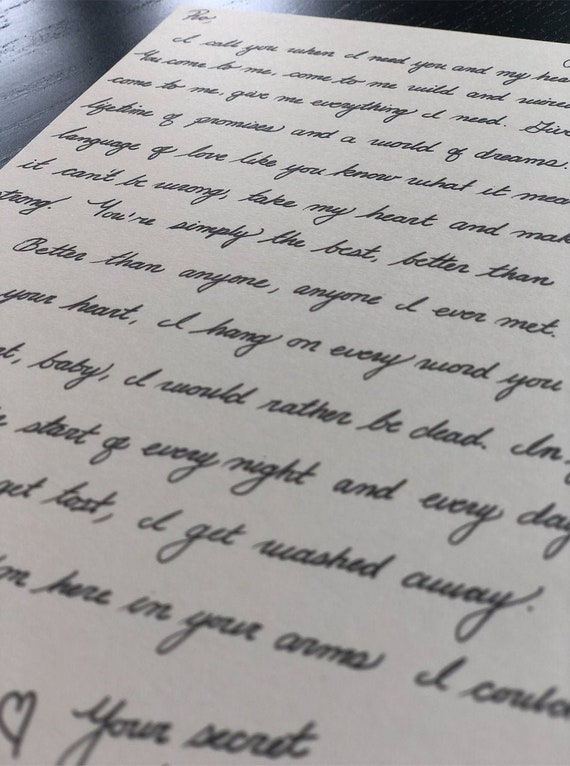 I call you when I need you and my hea
You come to me, come to me wild and wired
come to me, give me everything I need. Give
lifetime of promises and a world of dreams.
language of love like you know what it mean
it can't be wrong, take my heart and mak
strong. You're simply the best, better than
Better than anyone, anyone I ever met.
your heart, I hang on every word you
t, baby, I would rather be dead. In
e start of every night and every day
get lost, I get washed away.
I'm here in your arms I could
♡ Your secret